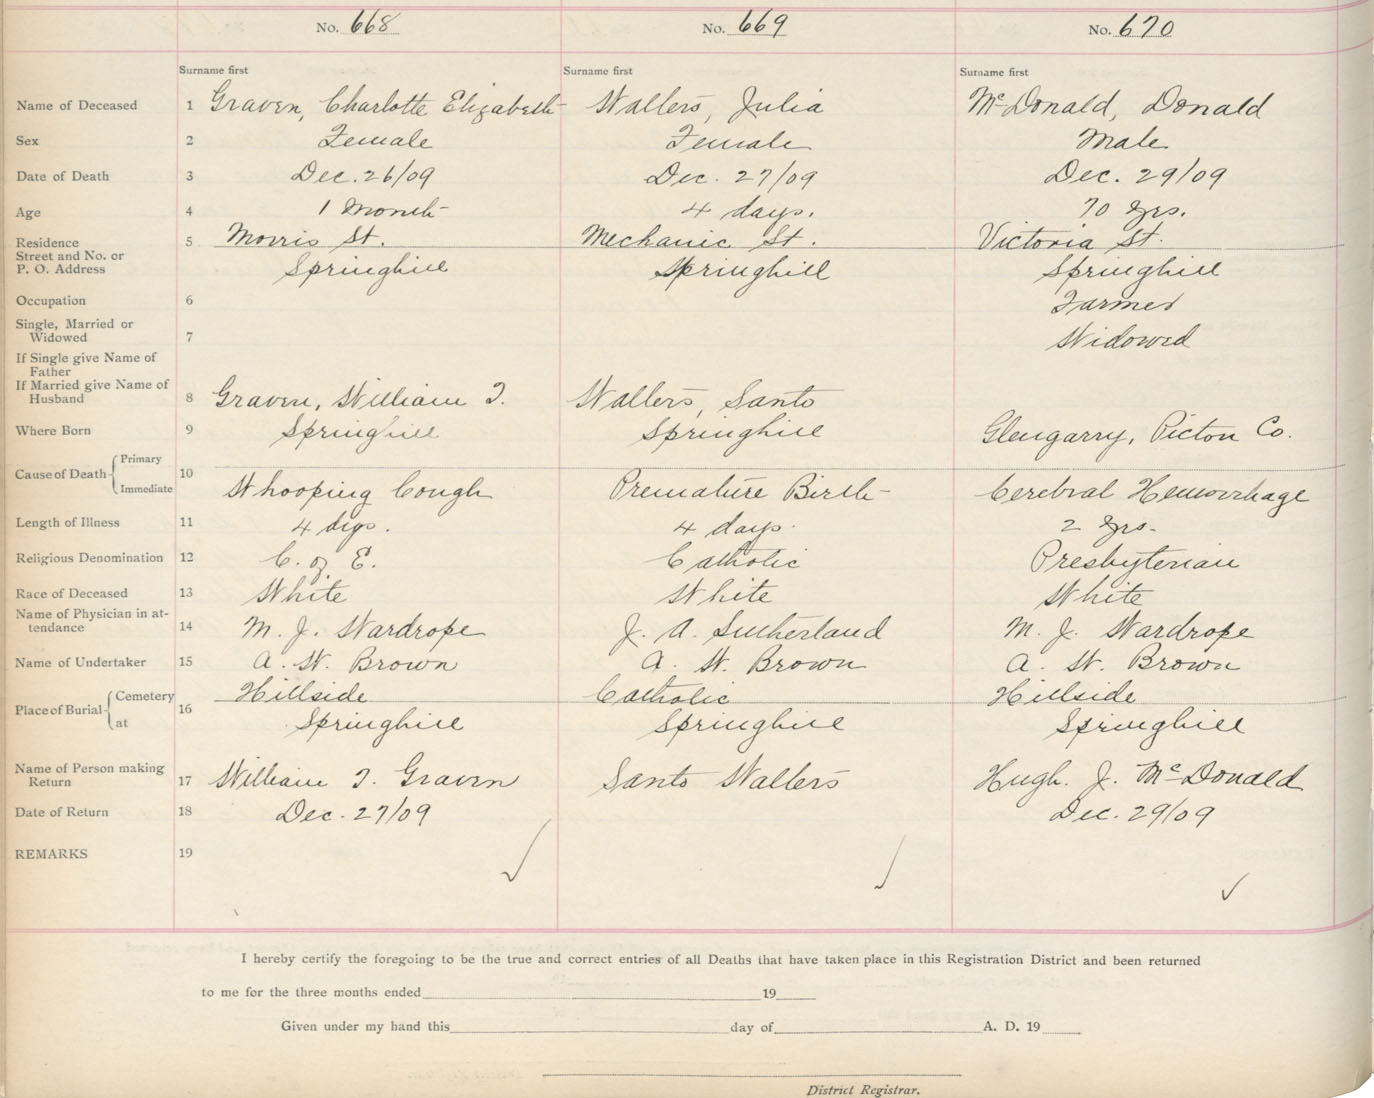 No. 668 No. 669 No. 670
Surname first Surname first Surname first
Name of Deceased 1 Graven, Charlotte Elizabeth Walters, Julia McDonald, Donald
Sex 2 Female Female Male
Date of Death 3 Dec. 26/09 Dec. 27/09 Dec. 29/09
Age 4 1 Month 4 days. 70 yrs.
Residence 5 Morris St. Mechanic St. Victoria St.
Street and No. or
P. O. Address Springhill Springhill Springhill
Occupation 6 Farmer
Single, Married or
Widowed 7 Widowed
If Single give Name of
Father
If Married give Name of
Husband 8 Graven, William T. Walters, Santo
Where Born 9 Springhill Springhill Glengarry, Picton Co.
Cause of Death Primary 10
Immediate Whooping Cough Premature Birth Cerebral Hemorrhage
Length of Illness 11 4 dys. 4 days. 2 yrs.
Religious Denomination 12 C. of E. Catholic Presbyterian
Race of Deceased 13 White White White
Name of Physician in at-
tendance 14 M. J. Wardrope J. A. Sutherland M. J. Wardrope
Name of Undertaker 15 A. W. Brown A. W. Brown A. W. Brown
Place of Burial Cemetery 16 Hillside Catholic Hillside
at Springhill Springhill Springhill
Name of Person making
Return 17 William T. Graven Santo Walters Hugh. J. McDonald
Date of Return 18 Dec. 27/09 Dec. 29/09
REMARKS 19
I hereby certify the foregoing to be the true and correct entries of all Deaths that have taken place in this Registration District and been returned
to me for the three months ended 19
Given under my hand this day of A. D. 19
District Registrar.